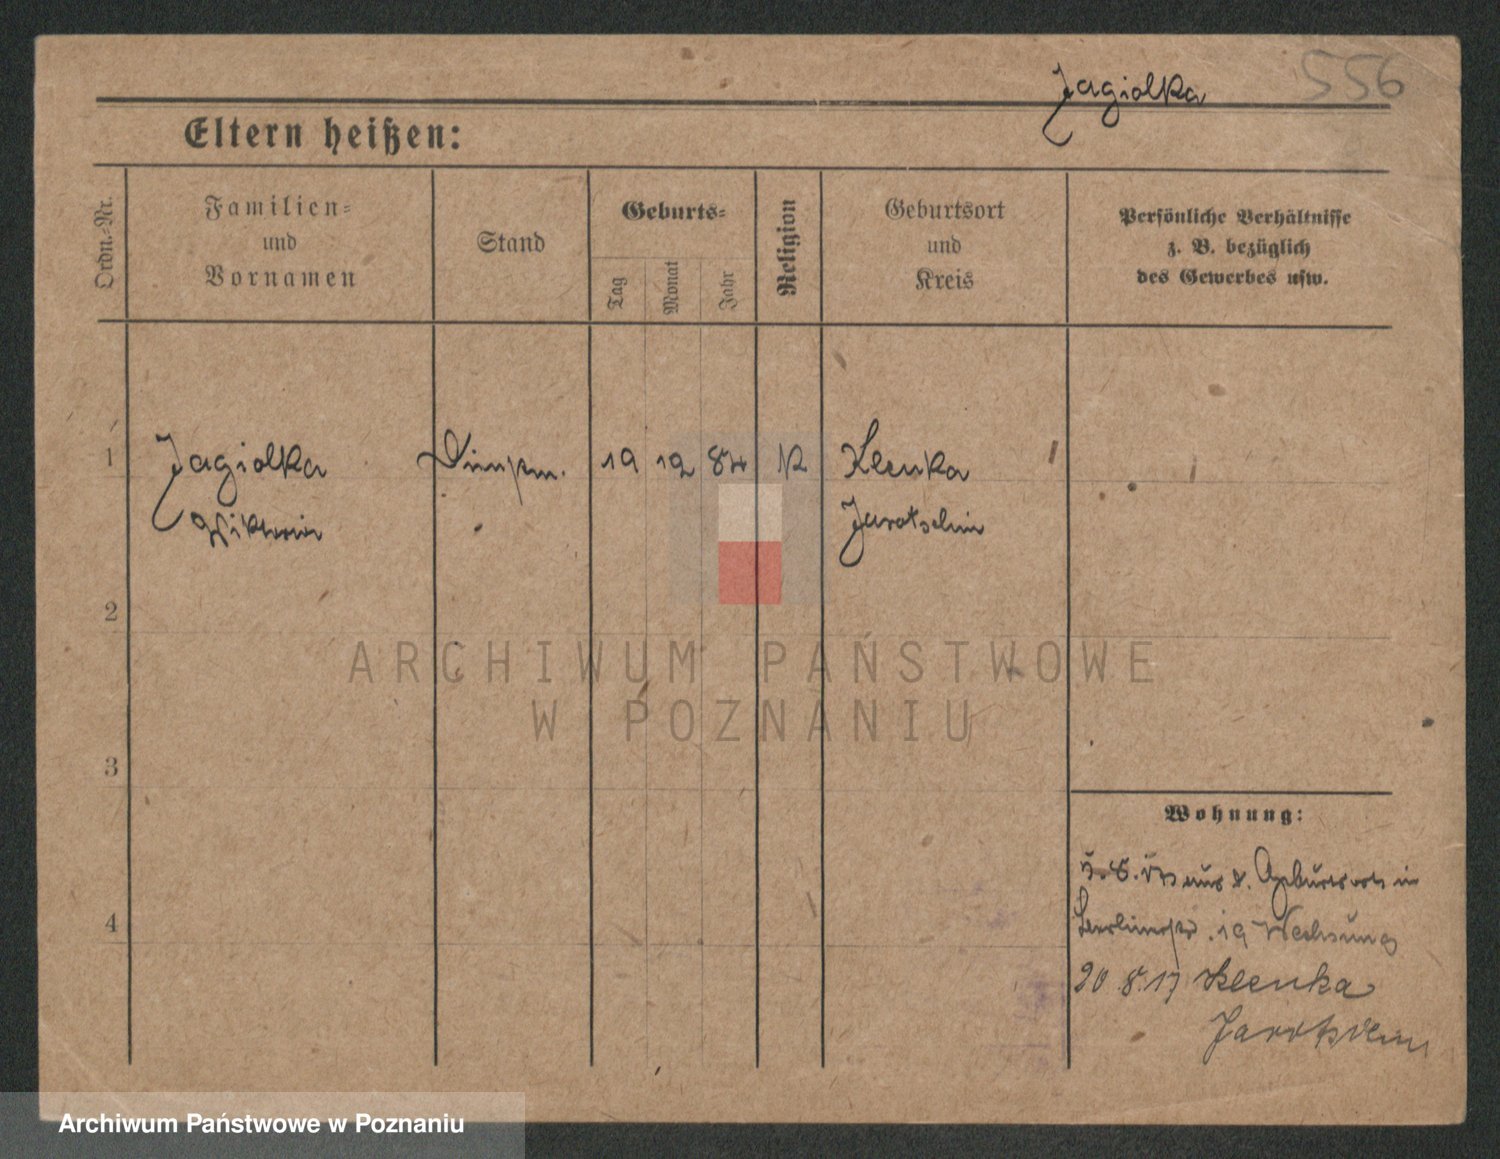 556
Jagiolka
Eltern heißen:
Ordn.-Nr.
Familien-
und
Vornamen
Stand
Geburts-
Tag
Monat
Jahr
Religion
Geburtsort
und
Kreis
Persönliche Verhältnisse
z. B. bezüglich
des Gewerbes usw.
1
Jagiolka
19 12 84 K
Klenka
Jarotschin
2
3
4
ARCHIWUM PAŃSTWOWE
W POZNANIU
Wohnung:
aus d. Geburtsort in
19
20.8.17 Klenka
Jarotschin
Archiwum Państwowe w Poznaniu